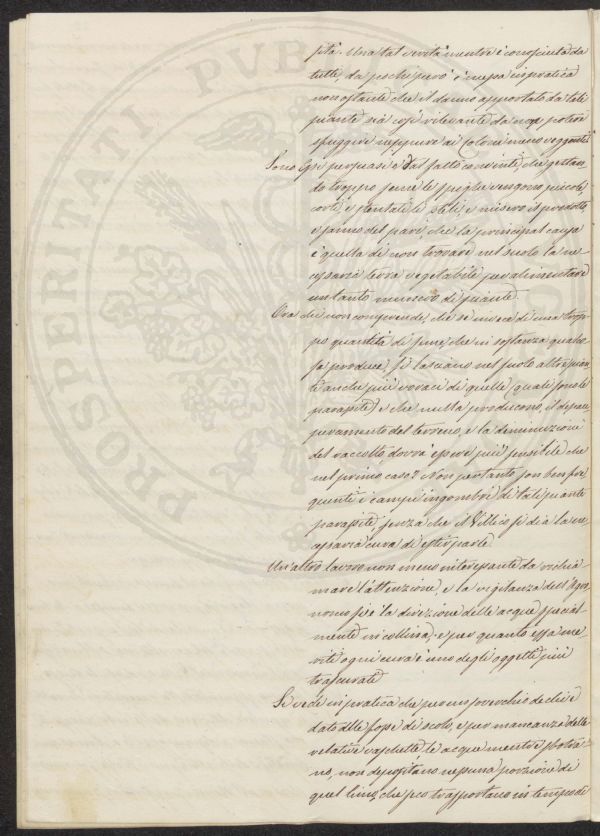 sità. Una tal verità mentre è conosciuta da
tutti, da pochi però è messa in pratica
non ostante che il danno apportato da tali
piante sia così rilevante da non potere
sfuggire neppure ai coloni meno veggenti
Sono essi persuasi e dal fatto convinti, che gettan-
do troppo seme le spighe vengono piccole,
corti, e stentati li steli, e misero il prodotto,
e sanno del pari, che la principal causa
è quella di non trovare nel suolo la ne-
cessaria terra vegetabile per alimentare
un tanto numero di piante.
Ora chi non comprende, che se invece di una trop-
po quantità di seme, che in sostanza qualco-
sa produce, si lasciano nel suolo altre pian-
te anche più voraci di quelle (quali sono le
parasite) e che nulla producono, il depau-
peramento del terreno, e la deminuzione
del raccolto dovrà essere più sensibile che
nel primo caso? Non pertanto son ben fre-
quenti i campi ingombri di tali piante
parasite, senza che il Villico si dia la ne-
cessaria cura di estirparle.
Un'altro lavoro non meno interessante da richia-
mare l'attenzione, e la vigilanza dell'Agro-
nomo si è la direzione delle acque special-
mente in collina, e per quanto essa me-
riti ogni cura è uno degli oggetti più
trascurati
Si vede in pratica che per uno soverchio declive
dato alle fosse di scolo, e per mancanza delle
relative vaschette le acque mentre sbotra-
no, non depositano nessuna porzione di
quel limo, che seco trasportano in tempo di
PROSPERITATI PUBLICAE